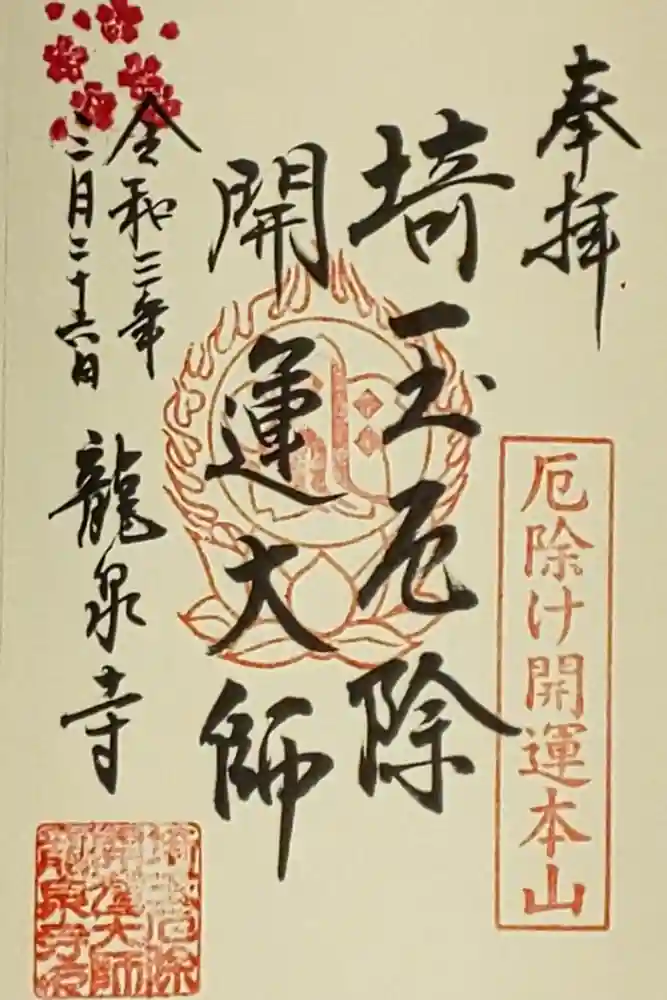 奉拝
厄除け開運本山
埼玉厄除
開運大師
令和三年
三月二十六日
龍泉寺
埼玉厄除
開運大師
龍泉寺印